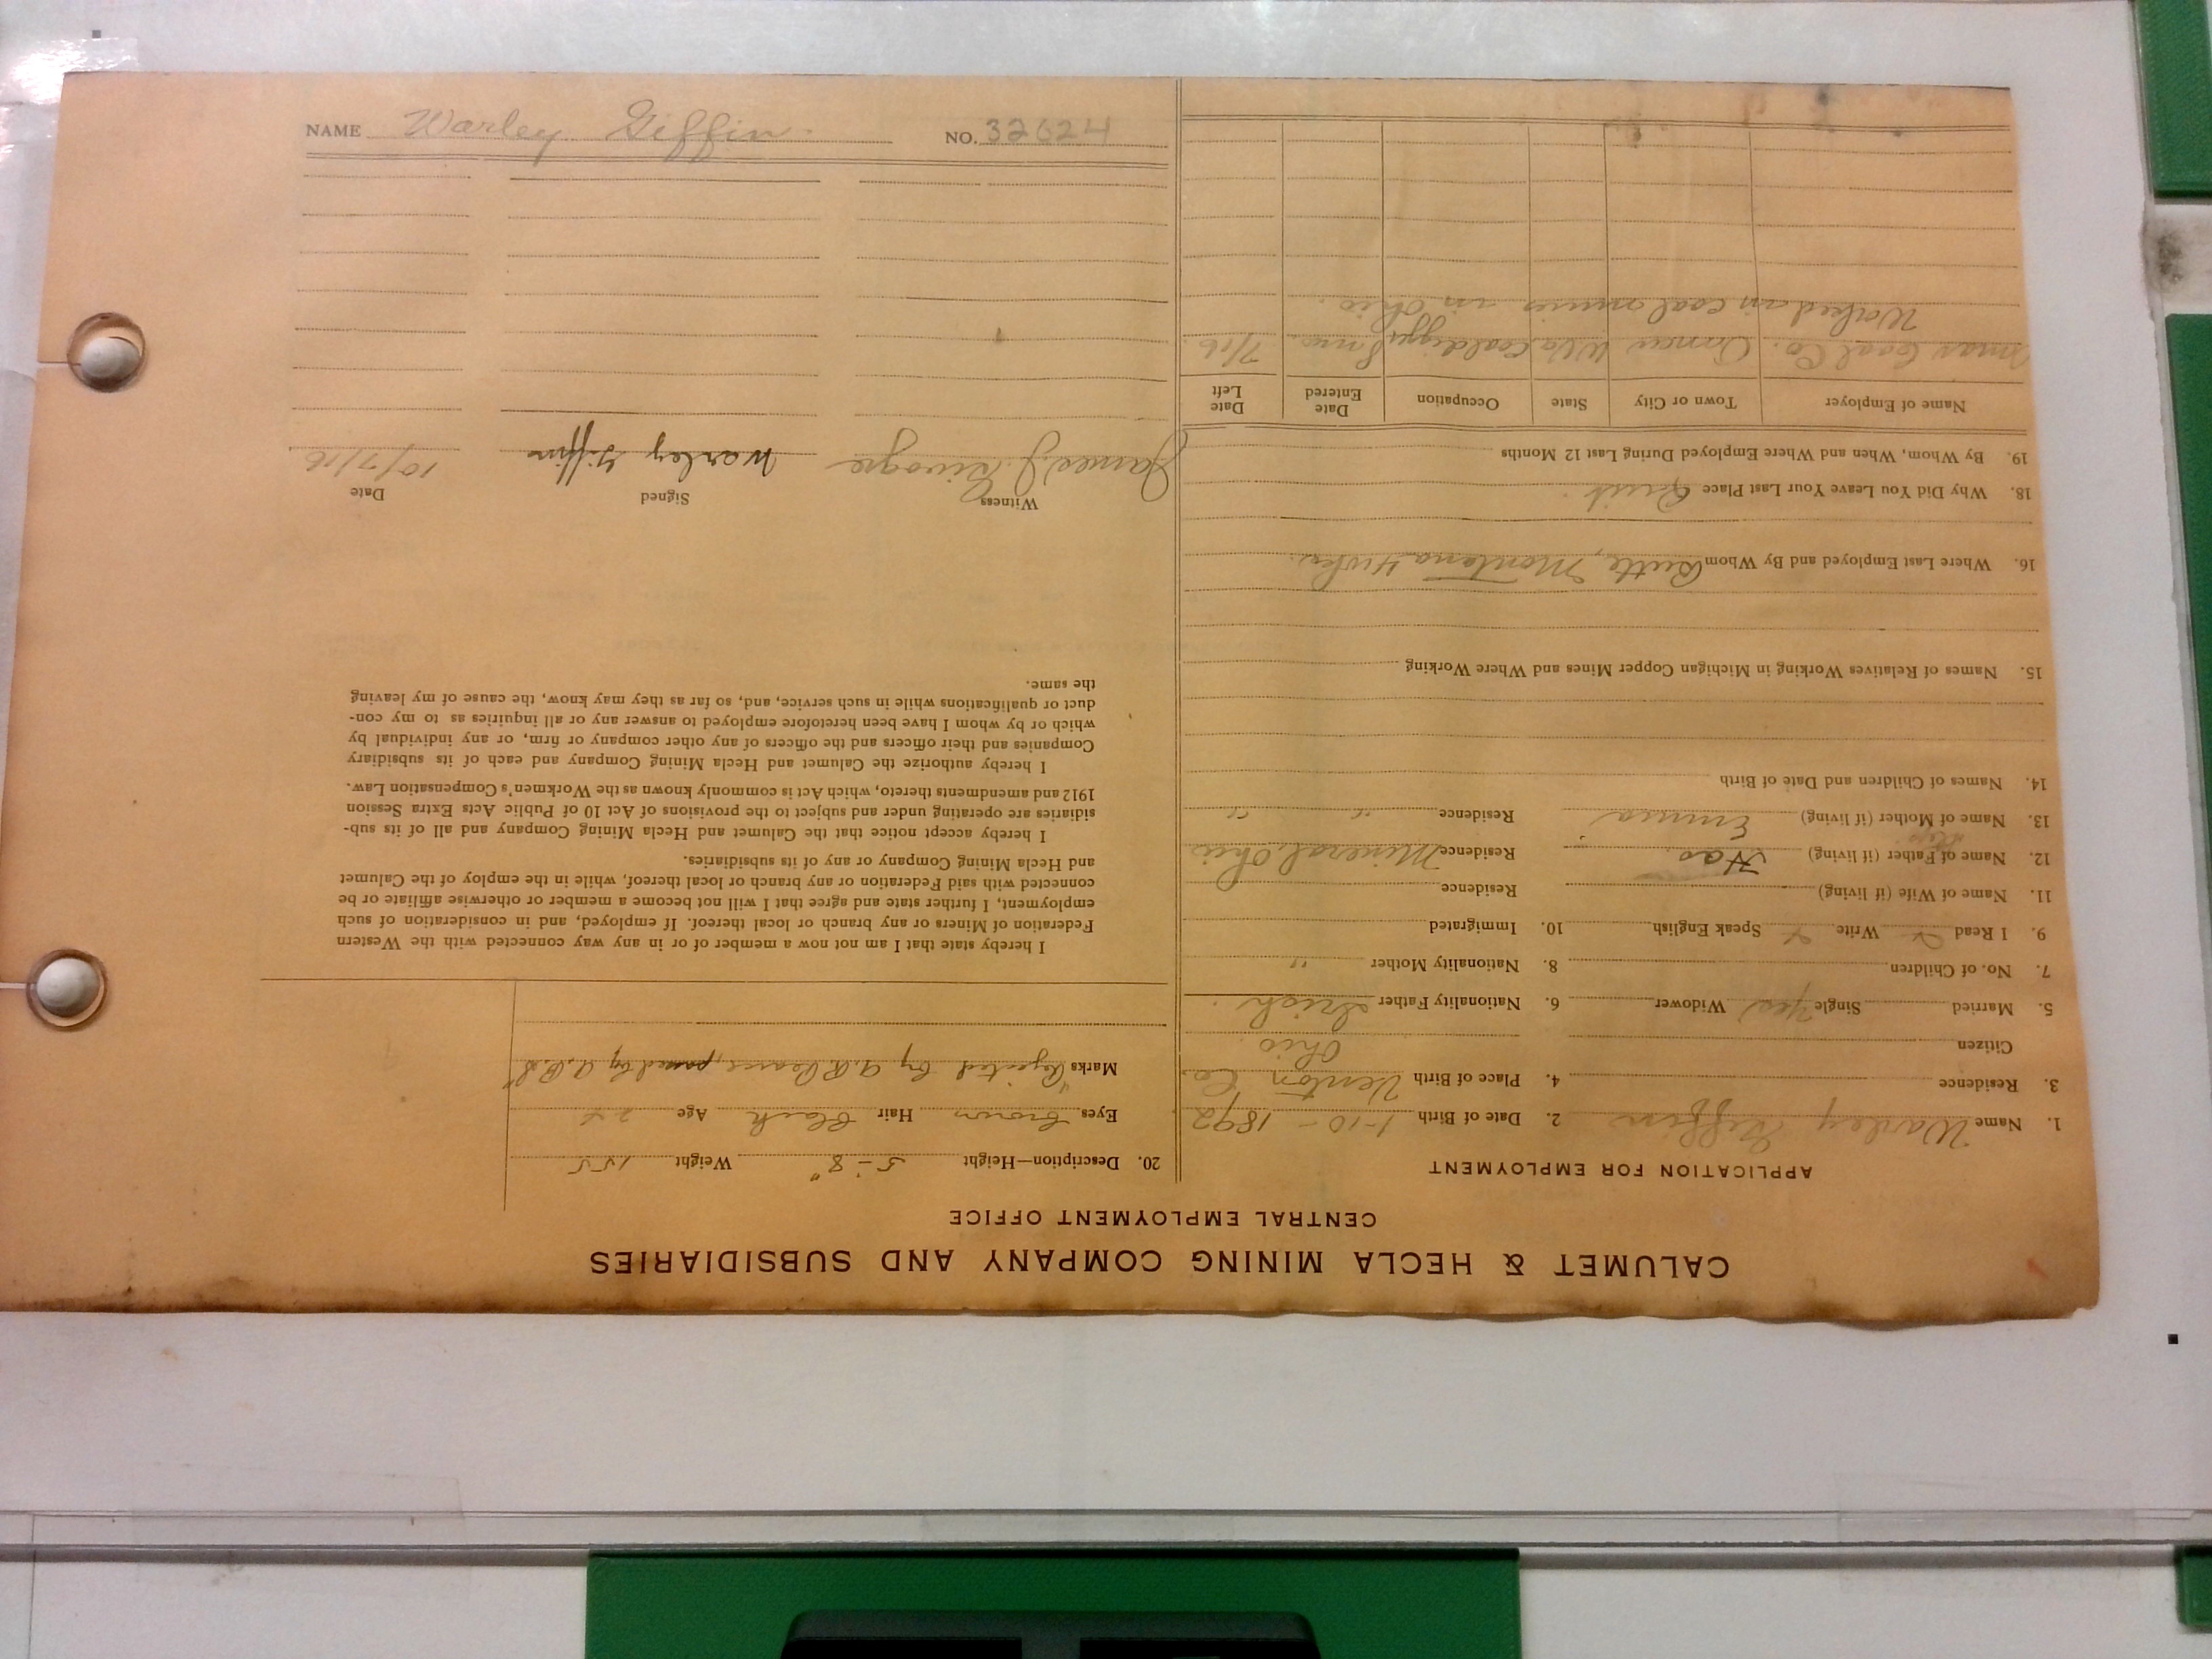 CALUMET & HECLA MINING COMPANY AND SUBSIDIARIES
CENTRAL EMPLOYMENT OFFICE
APPLICATION FOR EMPLOYMENT
1. Name Warley Giffin 2. Date of Birth 1-10-1892
3. Residence 4. Place of Birth Venton Co.
Citizen Ohio
5. Married Single Yes Widower 6. Nationality Father Irish
7. No. of Children 8. Nationality Mother "
9. I Read Write Speak English 10. Immigrated
11. Name of Wife (if living) Residence
12. Name of Father (if living) Residence Mineral, Ohio
13. Name of Mother (if living) Emma Residence " "
14. Names of Children and Date of Birth
15. Names of Relatives Working in Michigan Copper Mines and Where Working
16. Where Last Employed and By Whom Butte, Montana
18. Why Did You Leave Your Last Place Quit.
19. By Whom, When and Where Employed During Last 12 Months
Name of Employer Town or City State Occupation Date Entered Date Left
Coal Co. W Va 7/16.
Worked in coal mines in Ohio.
20. Description—Height 5-8" Weight 155
Eyes brown Hair Black Age 24
Marks Rejected by passed by
I hereby state that I am not now a member of or in any way connected with the Western
Federation of Miners or any branch or local thereof. If employed, and in consideration of such
employment, I further state and agree that I will not become a member or otherwise affiliate or be
connected with said Federation or any branch or local thereof, while in the employ of the Calumet
and Hecla Mining Company or any of its subsidiaries.
I hereby accept notice that the Calumet and Hecla Mining Company and all of its sub-
sidiaries are operating under and subject to the provisions of Act 10 of Public Acts Extra Session
1912 and amendments thereto, which Act is commonly known as the Workmen's Compensation Law.
I hereby authorize the Calumet and Hecla Mining Company and each of its subsidiary
Companies and their officers and the officers of any other company or firm, or any individual by
which or by whom I have been heretofore employed to answer any or all inquiries as to my con-
duct or qualifications while in such service, and, so far as they may know, the cause of my leaving
the same.
Witness Signed Date
James J. Warley Giffin 10/7/16
NAME Warley Giffin. NO. 32624